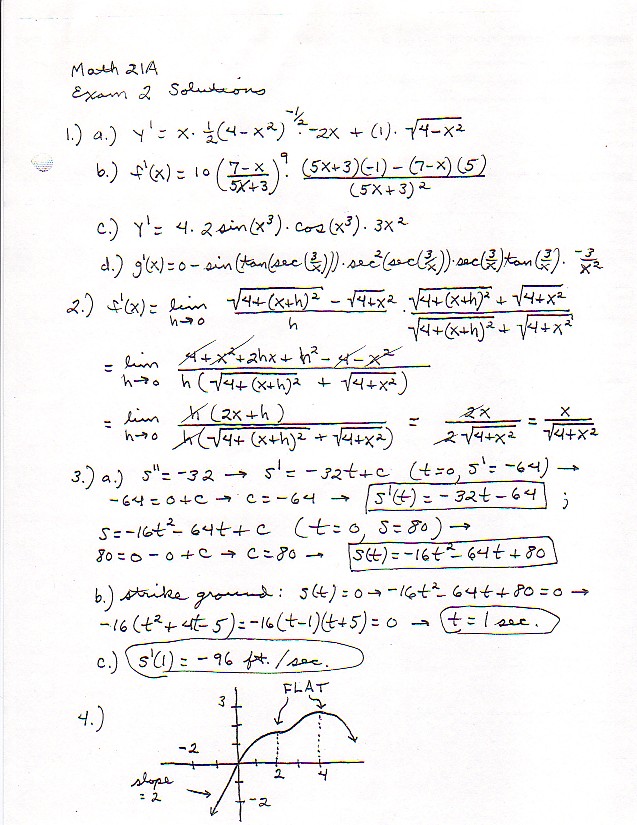 Math 21A
Exam 2 Solutions
1.) a.) y' = x · ½(4-x²)^(-1/2) · -2x + (1) · √(4-x²)
b.) f'(x) = 10 ((7-x)/(5x+3))⁹ · ((5x+3)(-1) - (7-x)(5))/(5x+3)²
c.) y' = 4 · 2 sin(x³) · cos(x³) · 3x²
d.) g'(x) = 0 - sin(tan(sec(3/x))) · sec²(sec(3/x)) · sec(3/x) tan(3/x) · -3/x²
2.) f'(x) = lim h→0 (√(4+(x+h)²) - √(4+x²))/h · (√(4+(x+h)²) + √(4+x²))/(√(4+(x+h)²) + √(4+x²))
= lim h→0 (4+x²+2hx+h²-4-x²)/(h(√(4+(x+h)²) + √(4+x²)))
= lim h→0 h(2x+h)/(h(√(4+(x+h)²) + √(4+x²))) = 2x/(2√(4+x²)) = x/√(4+x²)
3.) a.) s'' = -32 → s' = -32t+c (t=0, s'=-64) →
-64 = 0+c → c = -64 → s'(t) = -32t-64 ;
s = -16t²-64t+c (t=0, s=80) →
80 = 0-0+c → c=80 → s(t) = -16t²-64t+80
b.) strike ground: s(t)=0 → -16t²-64t+80=0 →
-16(t²+4t-5) = -16(t-1)(t+5) = 0 → t = 1 sec.
c.) s'(1) = -96 ft./sec.
4.)
FLAT
3
-2
2
4
slope
= 2
-2